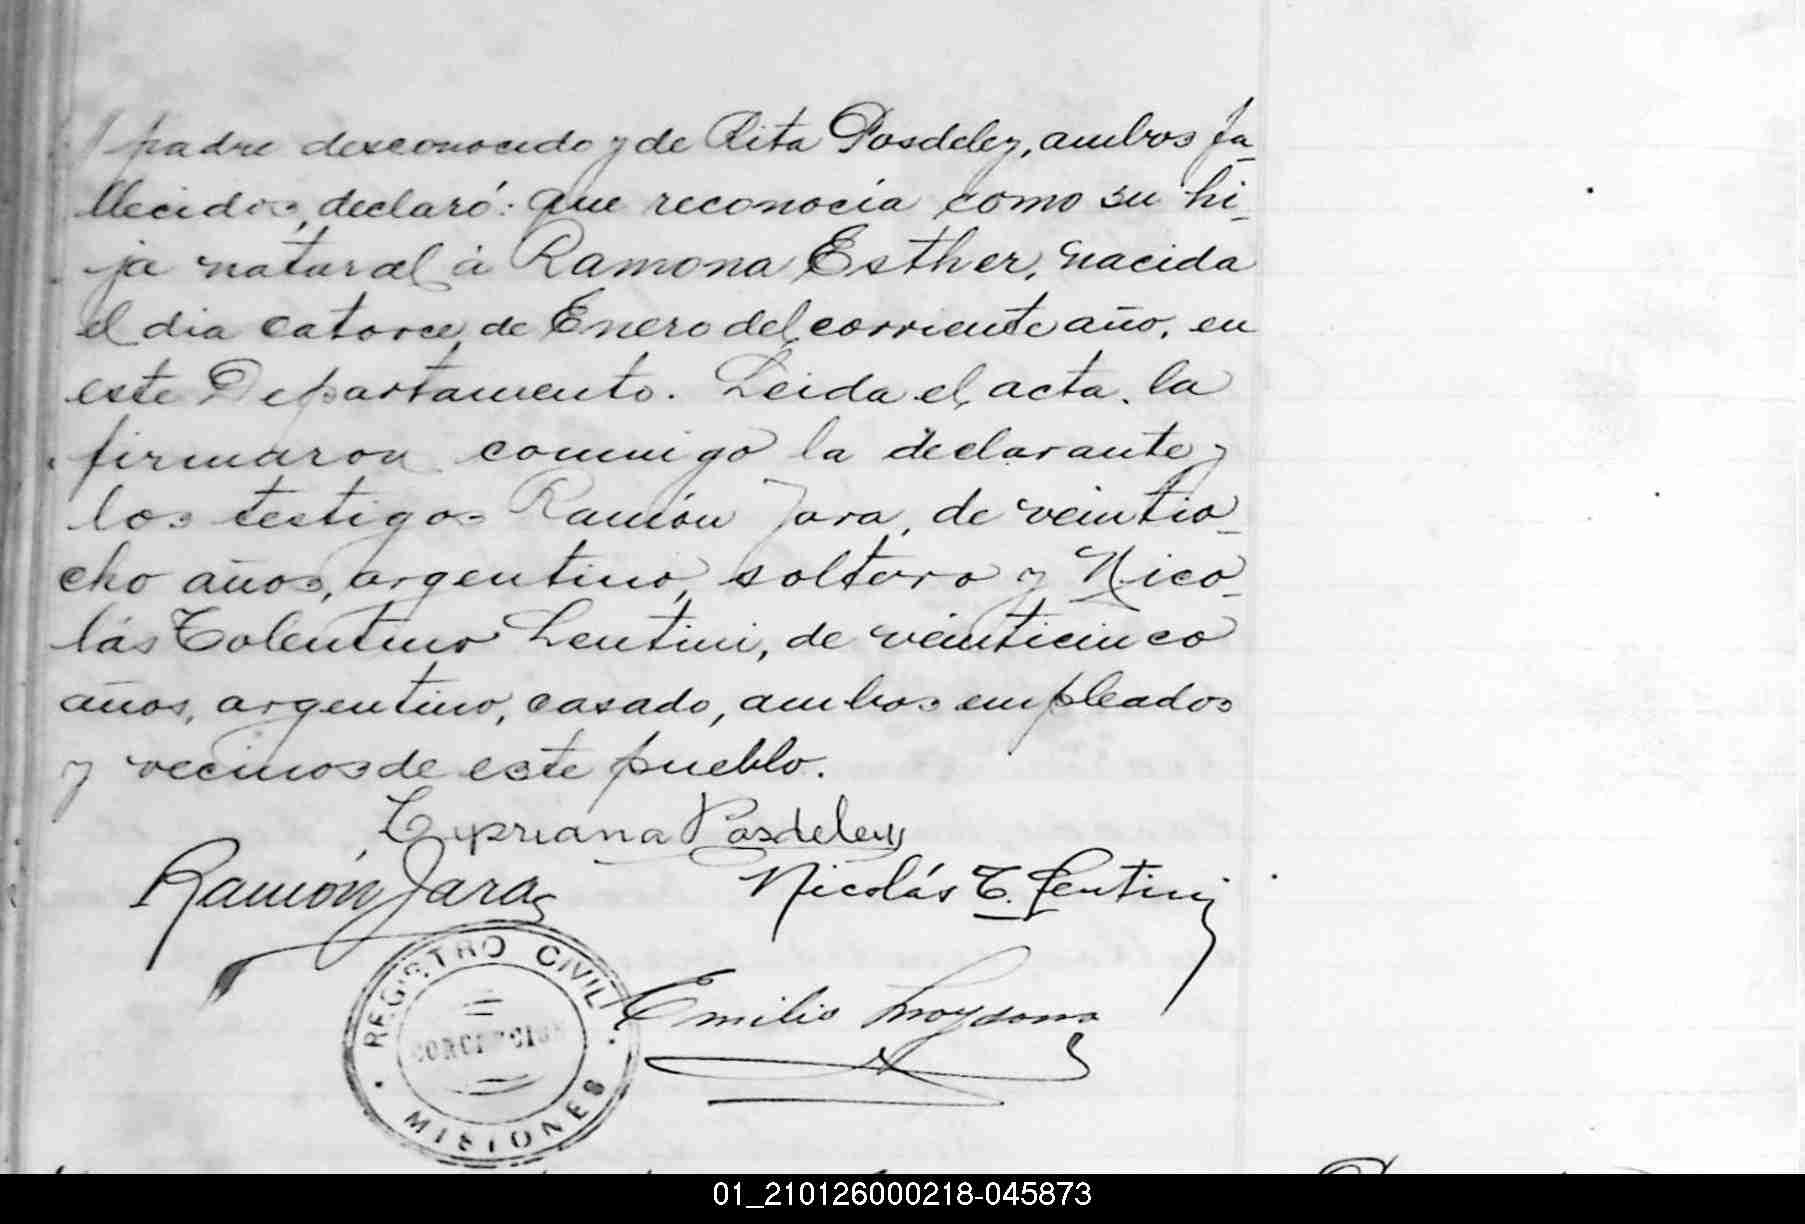 padre desconocido y de Rita Posdeley, ambos fa-
llecidos, declaró: que reconocía como su hi-
ja natural á Ramona Esther, nacida
el dia catorce de Enero del corriente año, en
este Departamento. Leida el acta, la
firmaron conmigo la declarante y
los testigos Ramón Jara, de veintio-
cho años, argentino, soltero y Nico-
lás Tolentino Lentini, de veinticinco
años, argentino, casado, ambos empleados
y vecinos de este pueblo.
Cypriana Posdeley
Ramón Jara
Nicolás T. Lentini
REGISTRO CIVIL
CONCEPCION
MISIONES
Emilio
01_210126000218-045873